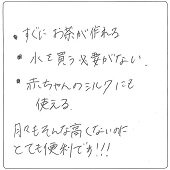 ・すぐに お茶が作れる
・水を買う必要がない.
・赤ちゃんのミルクにも
使える.
月々もそんな高くないのに
とても便利です!!!